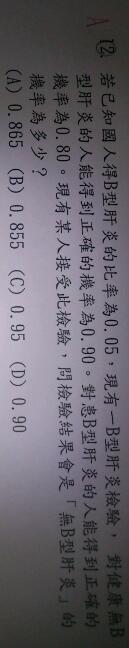 A 12. 若已知國人得B型肝炎的比率為0.05，現有一B型肝炎檢驗，對健康無B
型肝炎的人能得到正確的機率為0.90。對患B型肝炎的人能得到正確的
機率為0.80。現有某人接受此檢驗，問檢驗結果會是「無B型肝炎」的
機率為多少？
(A) 0.865 (B) 0.855 (C) 0.95 (D) 0.90